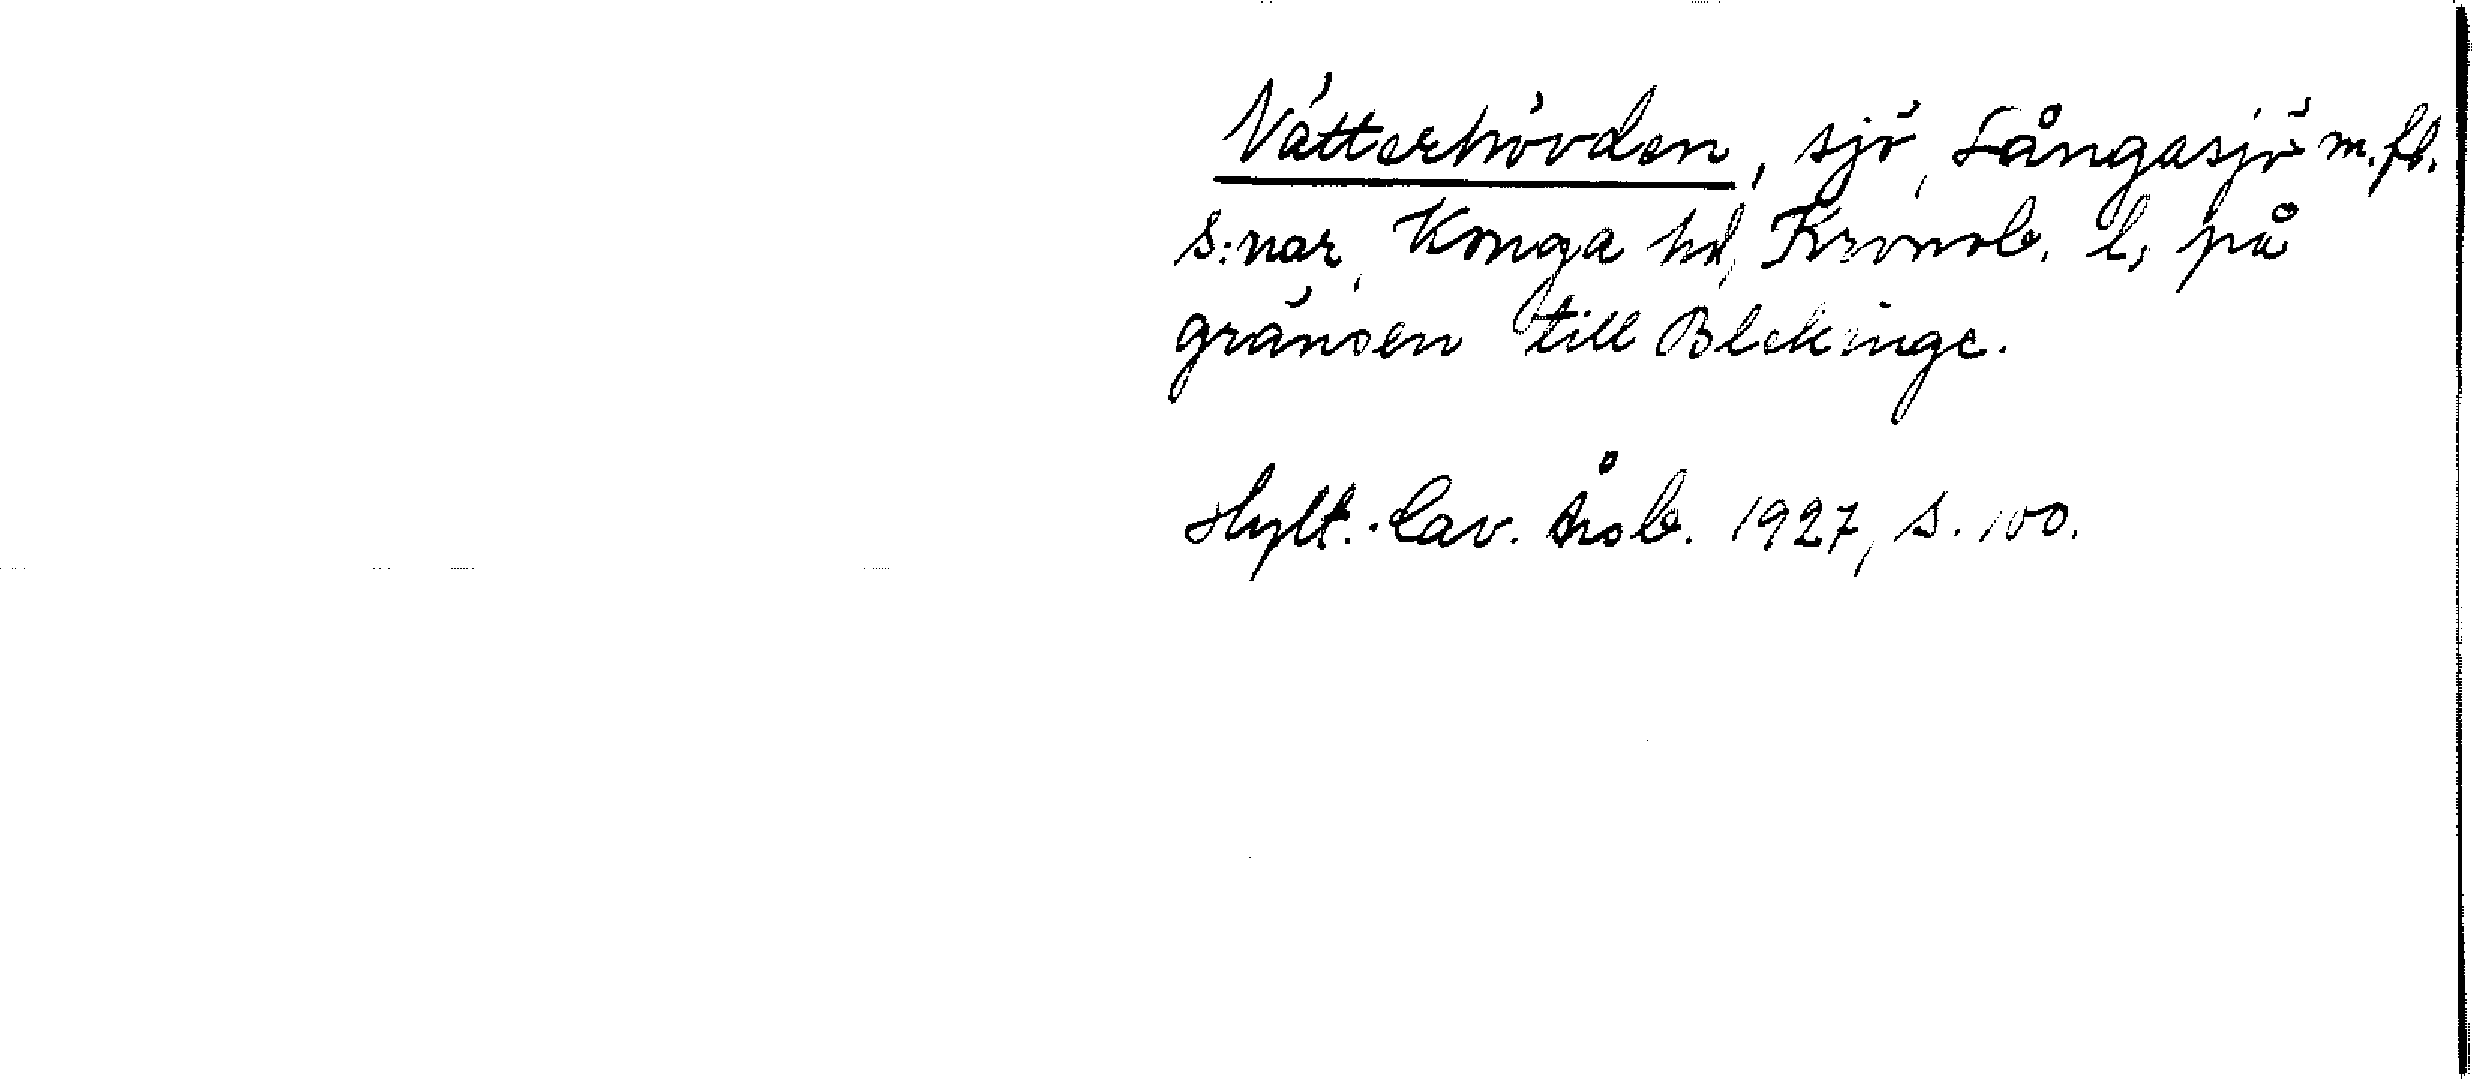 Vätterhövden, sjö, Långasjö m.fl.
s:nar, Konga hd, Kronob. l., på
gränsen till Blekinge.
Hylt.-Cav. Årsb. 1927, s. 100.